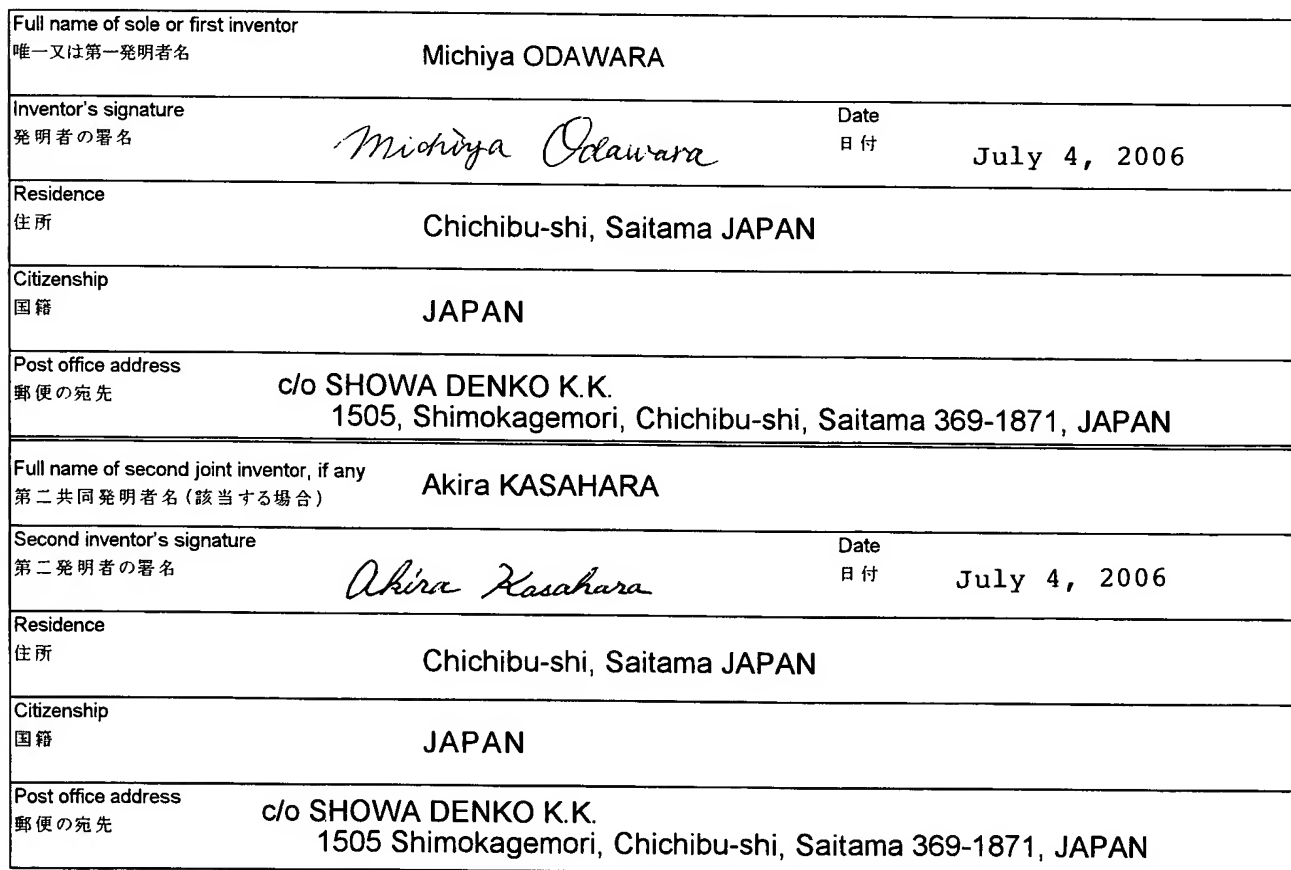 Full name of sole or first inventor
唯一又は第一発明者名 Michiya ODAWARA
Inventor's signature
発明者の署名 Michiya Odawara
Date
日付 July 4, 2006
Residence
住所 Chichibu-shi, Saitama JAPAN
Citizenship
国籍 JAPAN
Post office address
郵便の宛先
c/o SHOWA DENKO K.K.
1505, Shimokagemori, Chichibu-shi, Saitama 369-1871, JAPAN
Full name of second joint inventor, if any
第二共同発明者名(該当する場合) Akira KASAHARA
Second inventor's signature
第二発明者の署名 Akira Kasahara
Date
日付 July 4, 2006
Residence
住所 Chichibu-shi, Saitama JAPAN
Citizenship
国籍 JAPAN
Post office address
郵便の宛先
c/o SHOWA DENKO K.K.
1505 Shimokagemori, Chichibu-shi, Saitama 369-1871, JAPAN